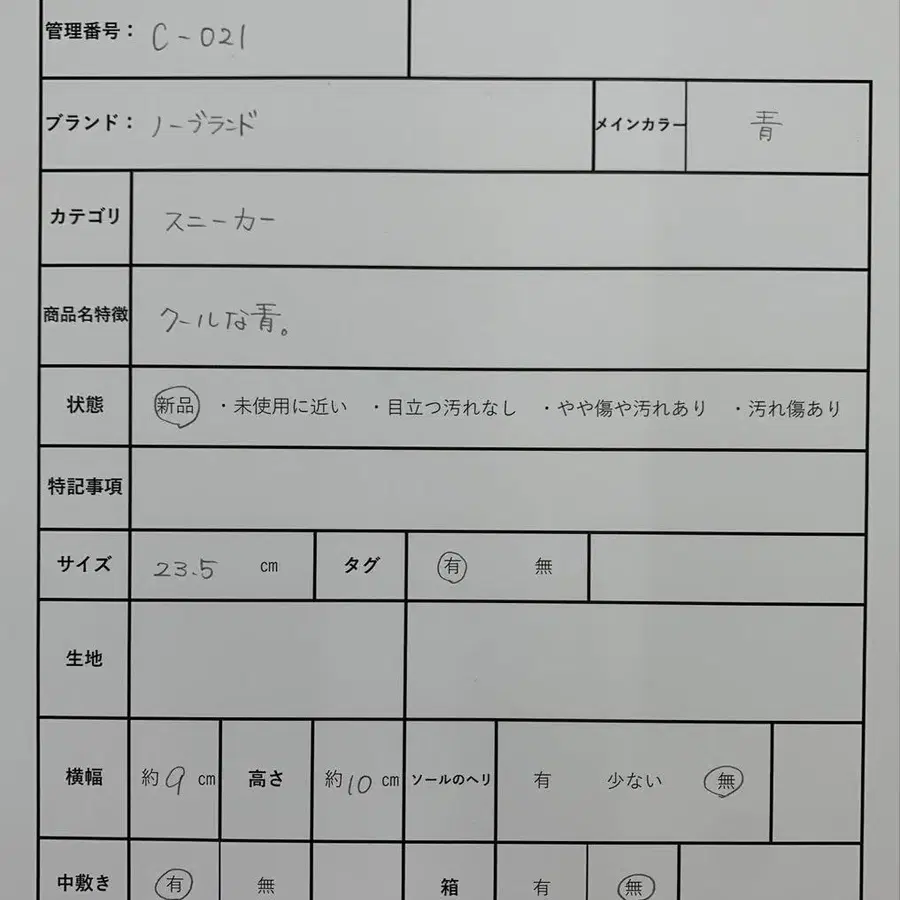 管理番号： C-021
ブランド： ノーブランド メインカラー 青
カテゴリ スニーカー
商品名特徴 クールな青。
状態 新品 ・未使用に近い ・目立つ汚れなし ・やや傷や汚れあり ・汚れ傷あり
特記事項
サイズ 23.5 cm タグ 有 無
生地
横幅 約9cm 高さ 約10cm ソールのヘリ 有 少ない 無
中敷き 有 無 箱 有 無